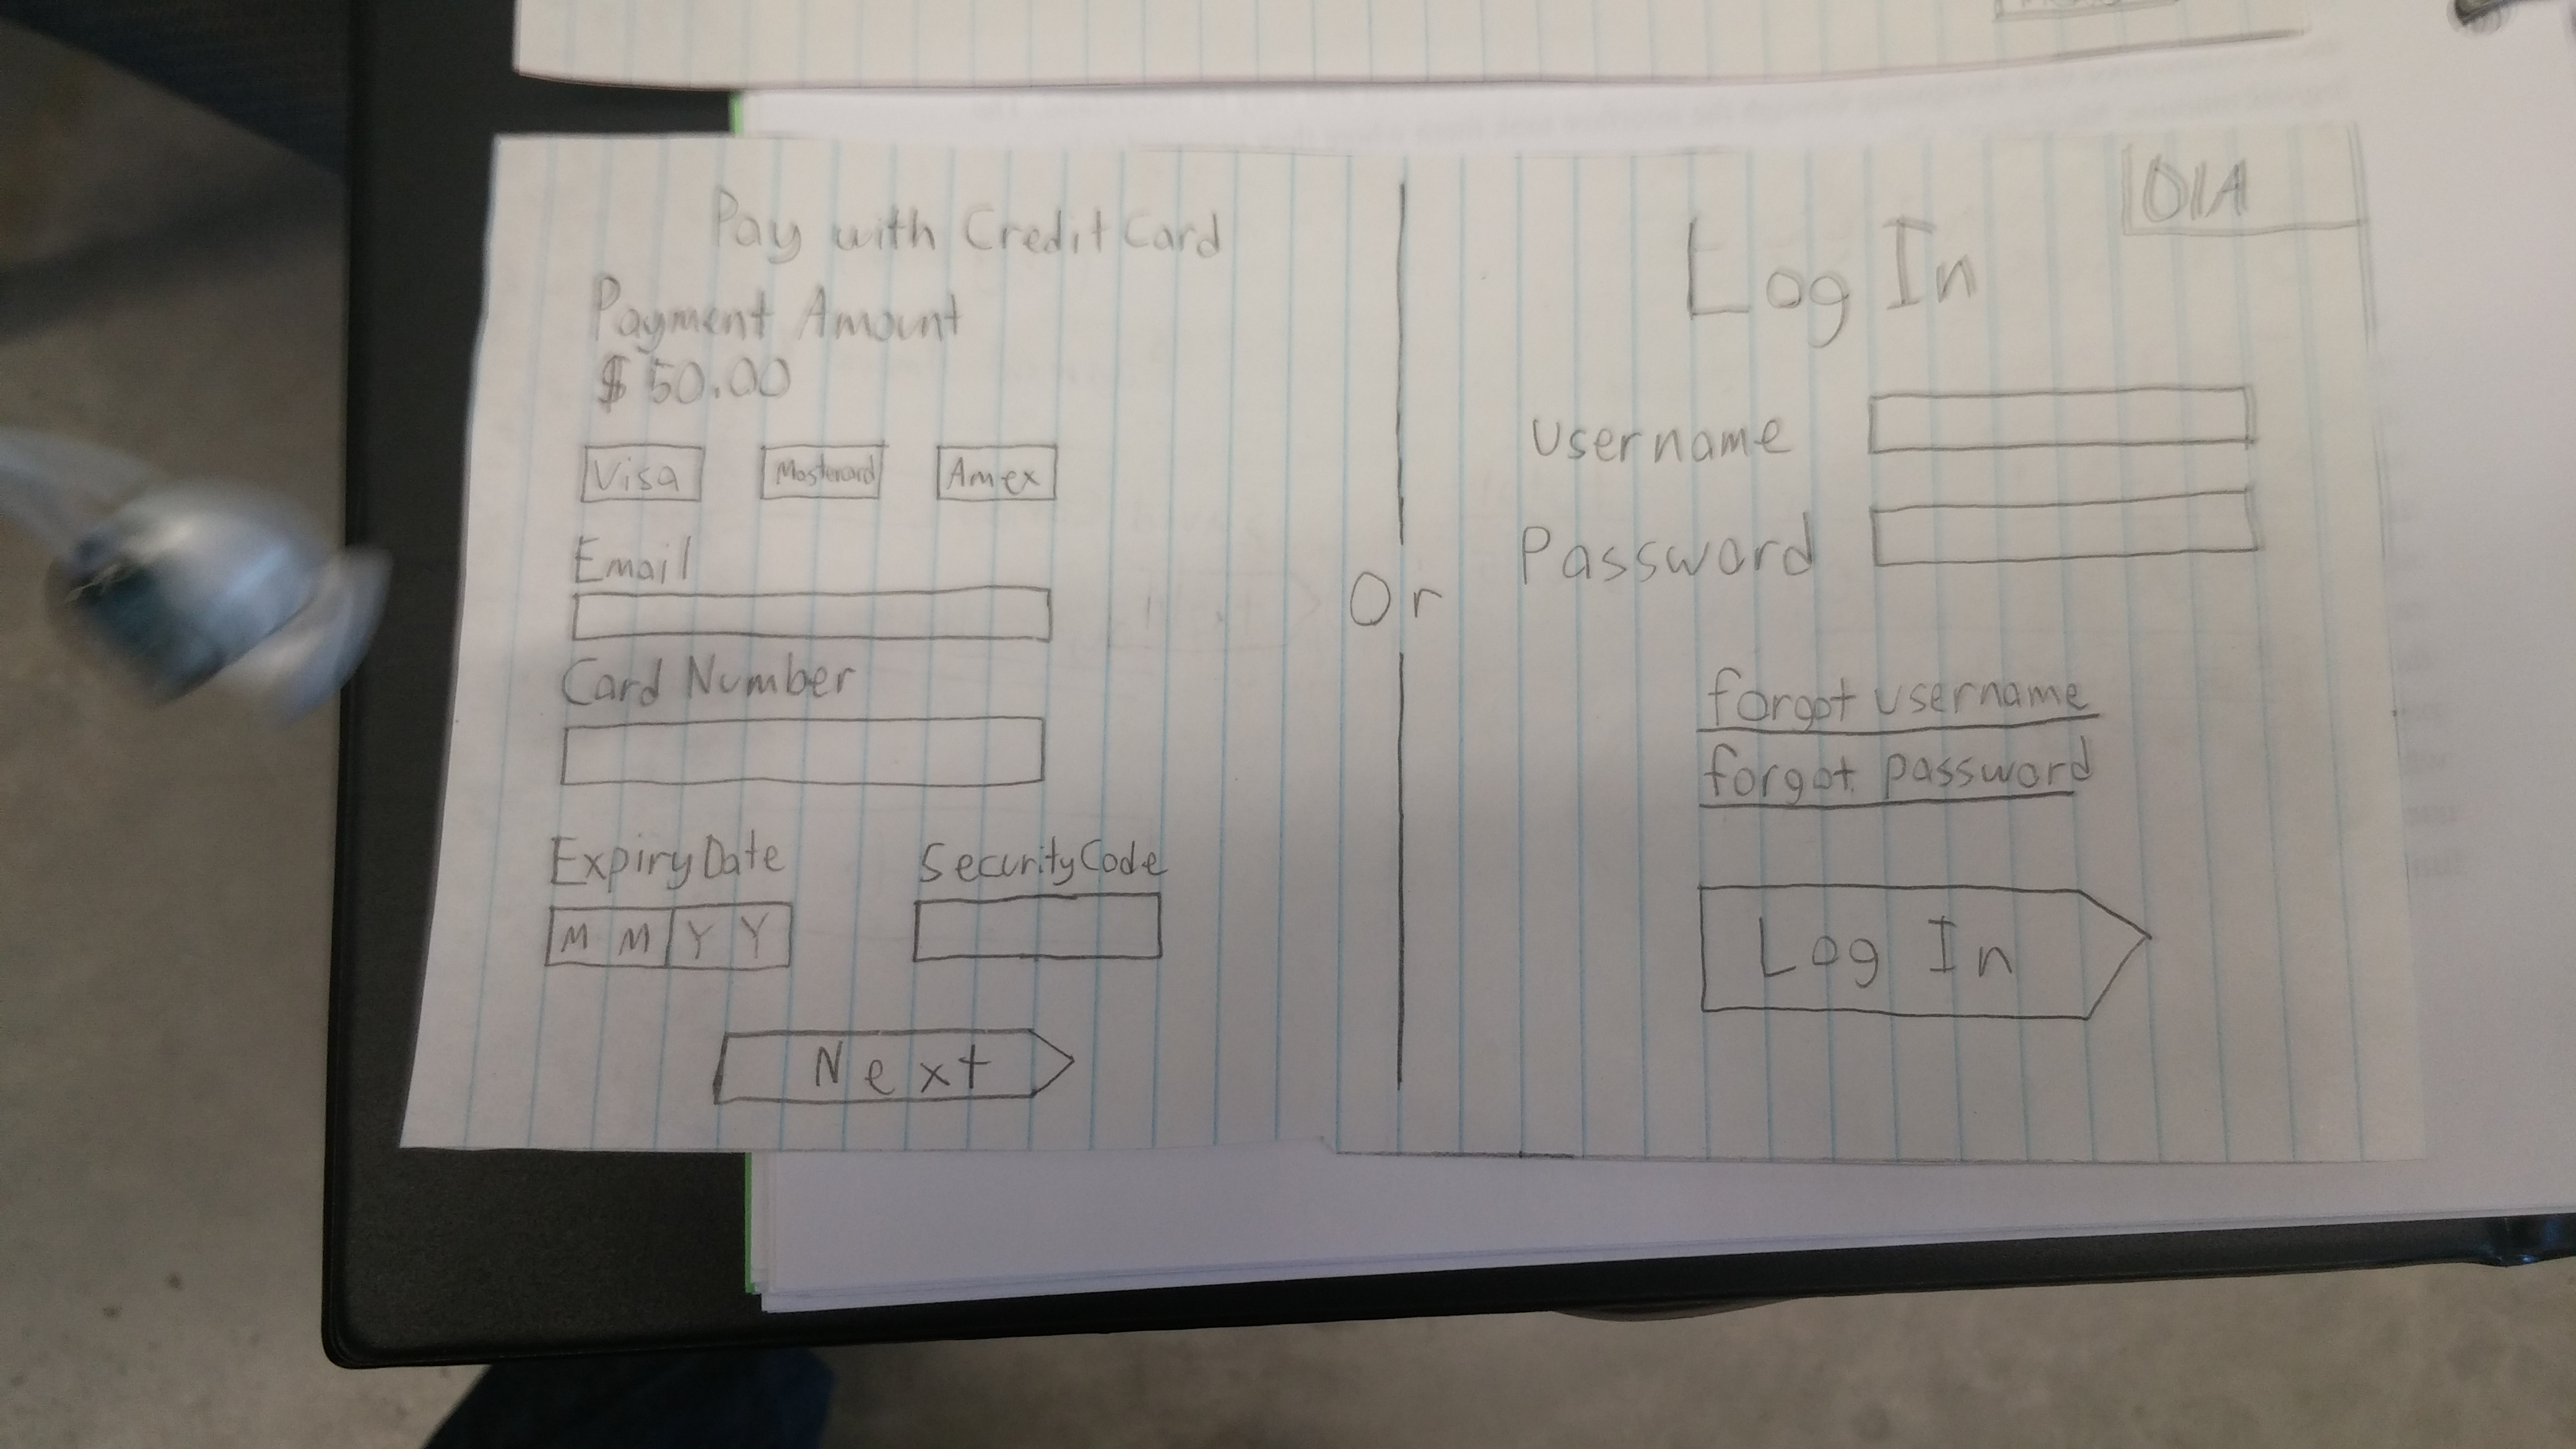 Pay with Credit Card
Payment Amount
$50.00
Visa Mastercard Amex
Email
Card Number
Expiry Date Security Code
M M Y Y
Next
Or
Log In
username
Password
forgot username
forgot password
Log In